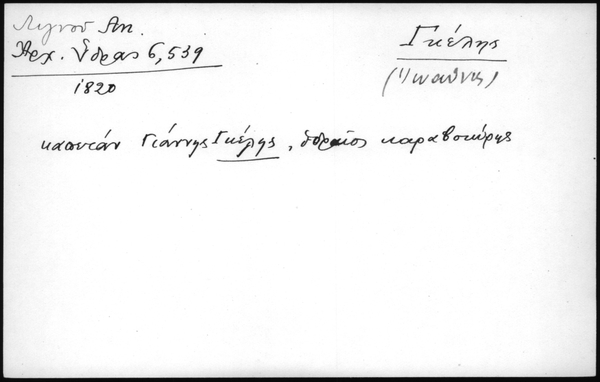 Λιγνού Αντ.
Αρχ. Ύδρας 6, 539
1820
Γκέλης
(Ιωάννης)
καπετάν Γιάννης Γκέλης, υδραίος καραβοκύρης